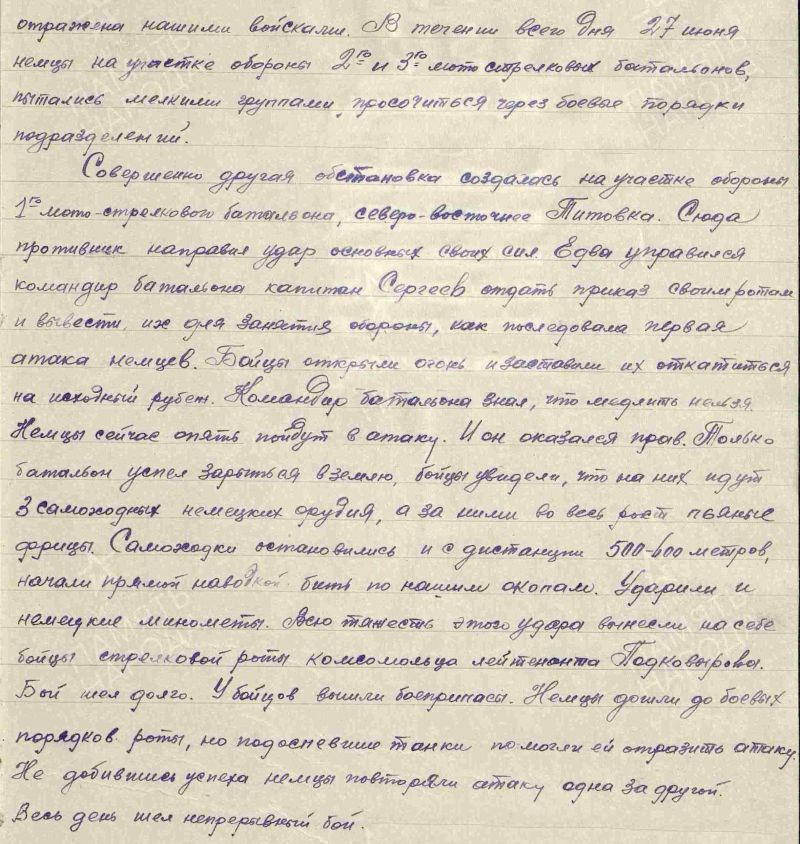 отражена нашими войсками. В течении всего дня 27 июня
немцы на участке обороны 2го и 3го мото стрелковых батальонов,
пытались мелкими группами просочиться через боевые порядки
подразделений.
Совершенно другая обстановка создалась на участке обороны
1го мото-стрелкового батальона, северо-восточнее Титовка. Сюда
противник направил удар основных своих сил. Едва управился
командир батальона капитан Сергеев отдать приказ своим ротам
и вывести их для занятия обороны, как последовала первая
атака немцев. Бойцы открыли огонь и заставили их откатиться
на исходный рубеж. Командир батальона знал, что медлить нельзя.
Немцы сейчас опять пойдут в атаку. И он оказался прав. Только
батальон успел зарыться в землю, бойцы увидели, что на них идут
3 самоходных немецких орудия, а за ними во весь рост пьяные
фрицы. Самоходки остановились и с дистанции 500-600 метров,
начали прямой наводкой бить по нашим окопам. Ударили и
немецкие минометы. Всю тяжесть этого удара вынесли на себе
бойцы стрелковой роты комсомольца лейтенанта Подковырова.
Бой шел долго. У бойцов вышли боеприпасы. Немцы дошли до боевых
порядков роты, но подоспевшие танки помогли ей отразить атаку.
Не добившись успеха немцы повторяли атаку одна за другой.
Весь день шел непрерывный бой.